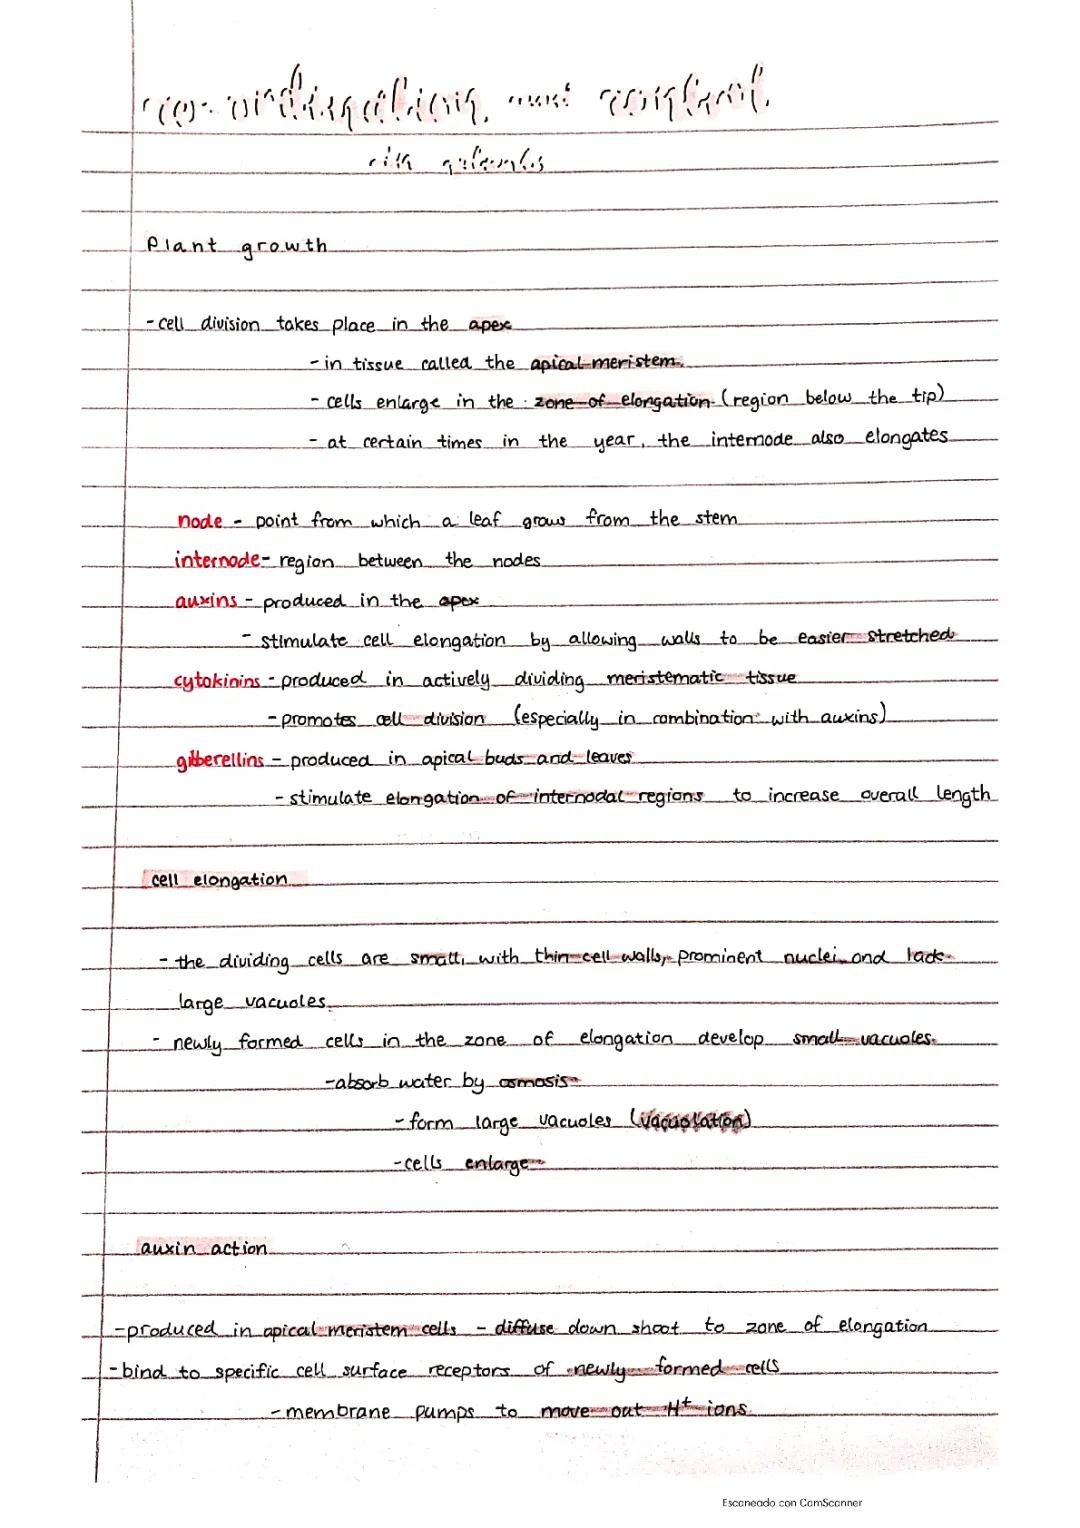 Plant growth
- cell division takes place in the apex
- in tissue called the apical meristem.
- cells enlarge in the zone of elongation (region below the tip)
- at certain times in the year, the internode also elongates
node - point from which a leaf grows from the stem
internode - region between the nodes
auxins - produced in the apex
- stimulate cell elongation by allowing walls to be easier stretched
cytokinins - produced in actively dividing meristematic tissue
- promotes cell division (especially in combination with auxins)
gibberellins - produced in apical buds and leaves
- stimulate elongation of internodal regions to increase overall length
cell elongation
- the dividing cells are small, with thin cell walls, prominent nuclei and lack
large vacuoles.
- newly formed cells in the zone of elongation develop small vacuoles.
- absorb water by osmosis
- form large vacuoles (vacuolation)
- cells enlarge
auxin action
- produced in apical meristem cells - diffuse down shoot to zone of elongation
- bind to specific cell surface receptors of newly formed cells
- membrane pumps to move out H+ ions.
Escaneado con CamScanner